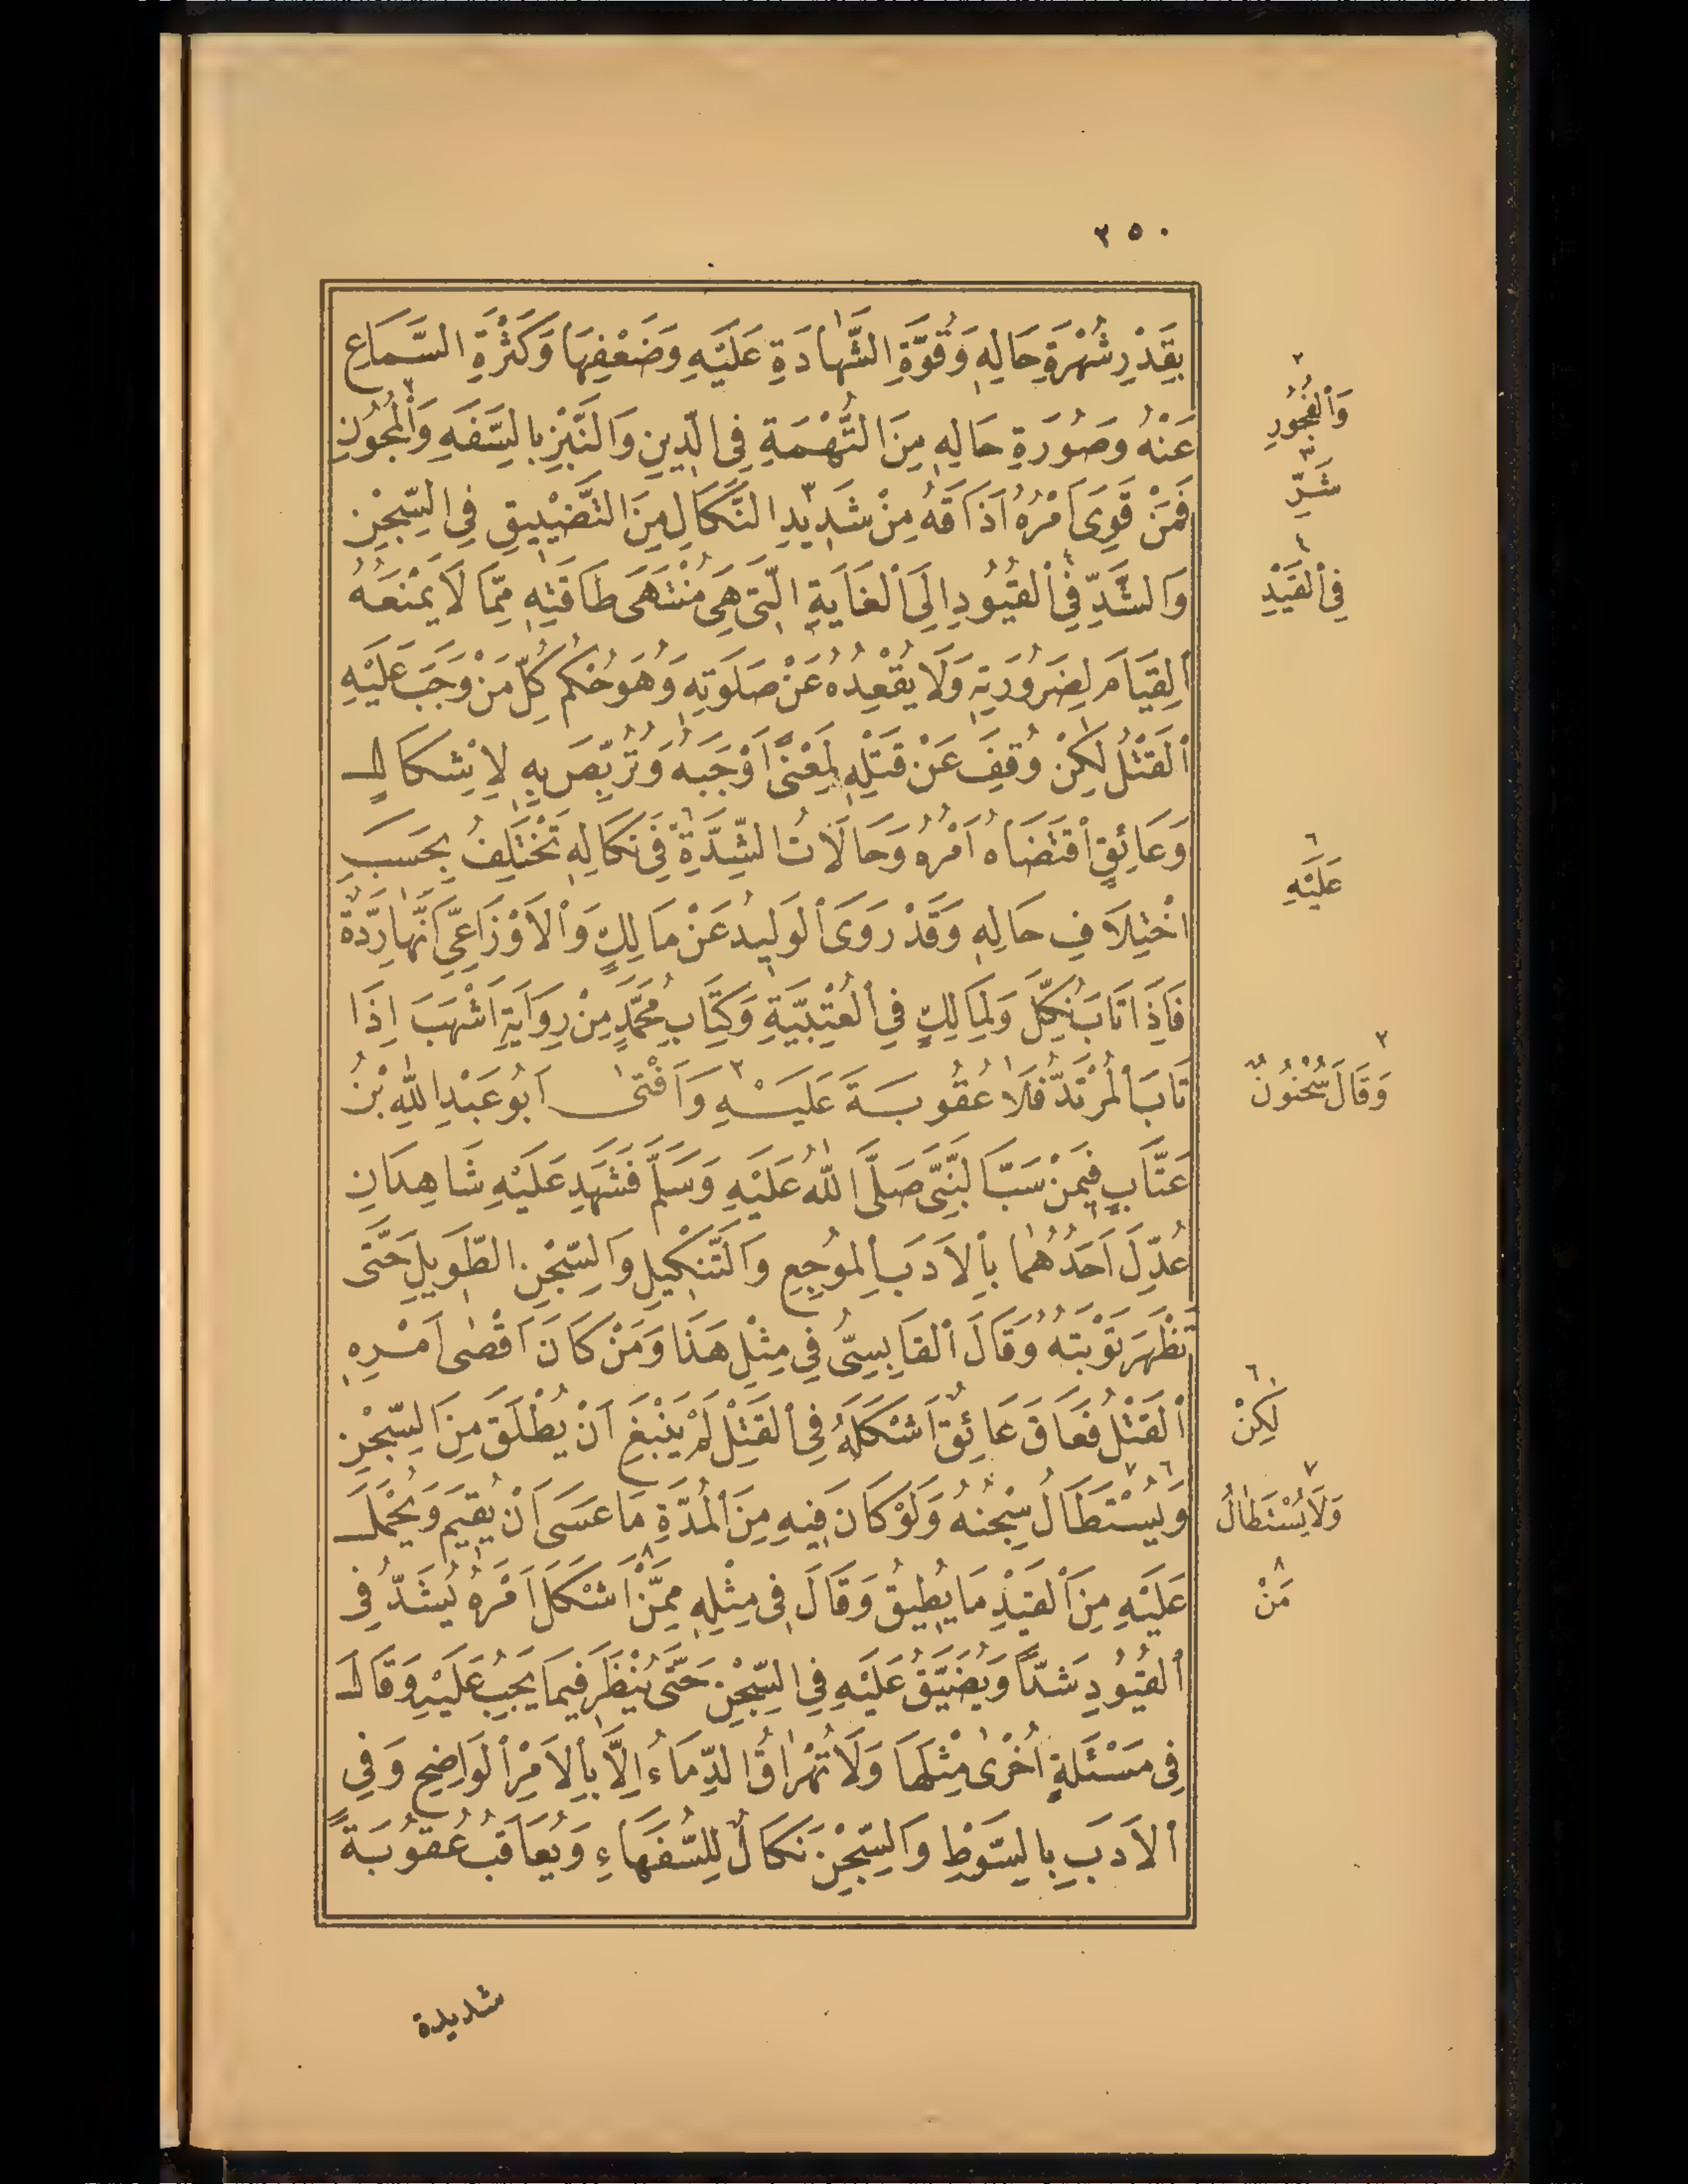 ٢٥٠
بِقَدْرِ شُهْرَةِ حَالِهِ وَقُوَّةِ الشَّهَادَةِ عَلَيْهِ وَضَعْفِهَا وَكَثْرَةِ السَّمَاعِ
عَنْهُ وَصُورَةِ حَالِهِ مِنَ التُّهْمَةِ فِي الدِّينِ وَالنَّبْزِ بِالسَّفَهِ وَالْمُجُونِ ٢
فَمَنْ قَوِىَ اَمْرُهُ اَذَاقَهُ مِنْ شَدِيدِ ٣ النَّكَالِ مِنَ التَّضْيِيقِ فِي السِّجْنِ
وَالشَّدِّ فِي الْقُيُودِ ٤ اِلَى الْغَايَةِ الَّتِى هِىَ مُنْتَهَى طَاقَتِهِ مِمَّا لَا يَمْنَعُهُ
الْقِيَامَ لِضَرُورَتِهِ وَلَا يُقْعِدُهُ عَنْ صَلَوتِهِ وَهُوَ حُكْمُ كُلِّ مَنْ وَجَبَ عَلَيْهِ
الْقَتْلُ لٰكِنْ وُقِفَ عَنْ قَتْلِهِ لِمَعْنًى اَوْجَبَهُ وَتُرُبِّصَ بِهِ لِاِشْكَالٍ
وَعَائِقٍ اقْتَضَاهُ اَمْرُهُ وَحَالَاتُ الشِّدَّةِ ٦ فِي نَكَالِهِ تَخْتَلِفُ بِحَسَبِ
اخْتِلَافِ حَالِهِ وَقَدْ رَوَى الْوَلِيدُ عَنْ مَالِكٍ وَالْاَوْزَاعِيِّ اَنَّهَا رِدَّةٌ
فَاِذَا تَابَ نُكِّلَ وَلِمَالِكٍ فِي الْعُتْبِيَّةِ وَكِتَابِ مُحَمَّدٍ مِنْ رِوَايَةِ اَشْهَبَ اِذَا
تَابَ الْمُرْتَدُّ فَلَا عُقُوبَةَ عَلَيْهِ ٣ وَاَفْتٰى اَبُو عَبْدِ اللّٰهِ بْنُ
عَتَّابٍ فِيمَنْ سَبَّ النَّبِيَّ صَلَّى اللّٰهُ عَلَيْهِ وَسَلَّمَ فَشَهِدَ عَلَيْهِ شَاهِدَانِ
عُدِّلَ اَحَدُهُمَا بِالْاَدَبِ الْمُوجِعِ وَالتَّنْكِيلِ وَالسِّجْنِ الطَّوِيلِ حَتَّى
تَظْهَرَ تَوْبَتُهُ وَقَالَ الْقَابِسِيُّ فِي مِثْلِ هَذَا وَمَنْ كَانَ اَقْصٰى اَمْرِهِ
الْقَتْلُ فَعَاقَ عَائِقٌ اَشْكَلَهُ فِي الْقَتْلِ لَمْ يَنْبَغِ اَنْ يُطْلَقَ مِنَ السِّجْنِ
٦ وَيُسْتَطَالُ ٧ سِجْنُهُ وَلَوْ كَانَ فِيهِ مِنَ الْمُدَّةِ مَا عَسَى اَنْ يُقِيمَ وَيُحْمَلُ
عَلَيْهِ مِنَ الْقَيْدِ مَا يُطِيقُ وَقَالَ فِي مِثْلِهِ مِمَّنْ ٨ اَشْكَلَ اَمْرُهُ يُشَدُّ فِي
الْقُيُودِ شَدًّا وَيُضَيَّقُ عَلَيْهِ فِي السِّجْنِ حَتَّى يُنْظَرَ فِيمَا يَجِبُ عَلَيْهِ وَقَالَ
فِي مَسْئَلَةٍ اُخْرٰى مِثْلِهَا وَلَا تُهْرَاقُ الدِّمَاءُ اِلَّا بِالْاَمْرِ الْوَاضِحِ وَفِي
الْاَدَبِ بِالسَّوْطِ وَالسِّجْنِ نَكَالٌ لِلسُّفَهَاءِ وَيُعَاقَبُ عُقُوبَةً
شديدة
٢
وَالْفُجُورِ
٣
شَرِّ
٤
فِي الْقَيْدِ
٦
عَلَيْهِ
٣
وَقَالَ سُحْنُونٌ
٦
لٰكِنْ
٧
وَلَا يُسْتَطَالُ
٨
مَنْ